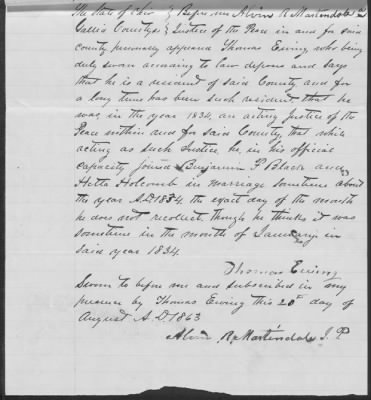 The State of Ohio } Before me Alvin R Martindale
Gallia County ss } Justice of the Peace in and for said
county personally appeared Thomas Ewing who being
duly sworn according to law deposes and says
that he is a resident of said County and for
a long time has been such resident, that he
was in the year 1834, an acting Justice of the
Peace within and for said County, that while
acting as such Justice he, in his official
capacity joined Benjamin F Black and
Hetta Holcomb in marriage sometime about
the year A.D 1834. the exact day of the month
he does not recollect, though he thinks it was
sometime in the month of January in
said year 1834.
Thomas Ewing
Sworn to before me and subscribed in my
presence by Thomas Ewing this 20th day of
August A.D 1863
Alvin R Martindale J. P